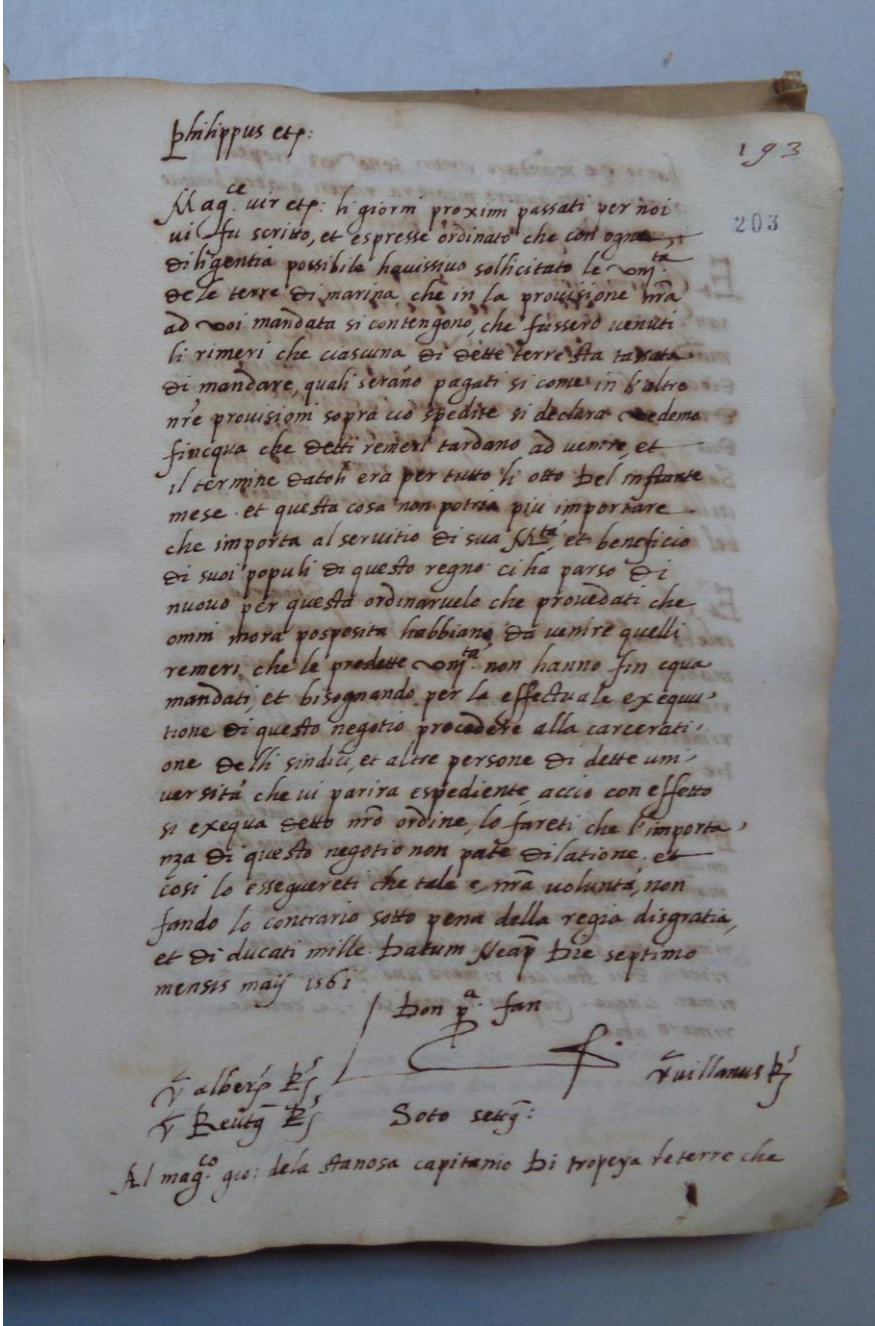 philippus etc:
193
203
Mag.ce vir etc: li giorni proximi passati per noi
vi fu scritto, et espresse ordinato che con ogne
diligentia possibile havissivo sollicitato le unj.ta
de le terre di marina che in la provisione nrã
ad voi mandata si contengono, che fussero venuti
li rimeri che ciascuna di dette terre sta taxata
di mandare, quali serano pagati si come in l'altre
nrẽ provisioni sopra ciò spedite si declara vedemo
fincqua che detti remeri tardano ad venire, et
il termine datoli era per tutto li otto del instante
mese. et questa cosa non potria piu importare
che importa al servitio di sua M.tà, et beneficio
di suoi populi di questo regno. ci ha parso di
nuovo per questa ordinarvelo che provedati che
omni mora posposita habbiano da venire quelli
remeri, che le predette unj.tà non hanno fin cqua
mandati, et bisognando per la effectuale exequu-
tione di questo negotio procedere alla carcerati-
one delli sindici, et altre persone di dette uni-
versità che vi parira espediente, accio con effetto
si exequa detto nrõ ordine, lo fareti che l'importa-
nza di questo negotio non pate dilatione. et
cosi lo essequereti che tale e, nrã voluntà, non
fando lo contrario sotto pena della regia disgratia,
et di ducati mille. Datum Neap̃ Die septimo
mensis maij 1561
Don p.a fan
v albert̃ R̃
v villanus R̃
v R̃
Soto
Al mag.co gio: dela stanosa capitanio di tropeya le terre che